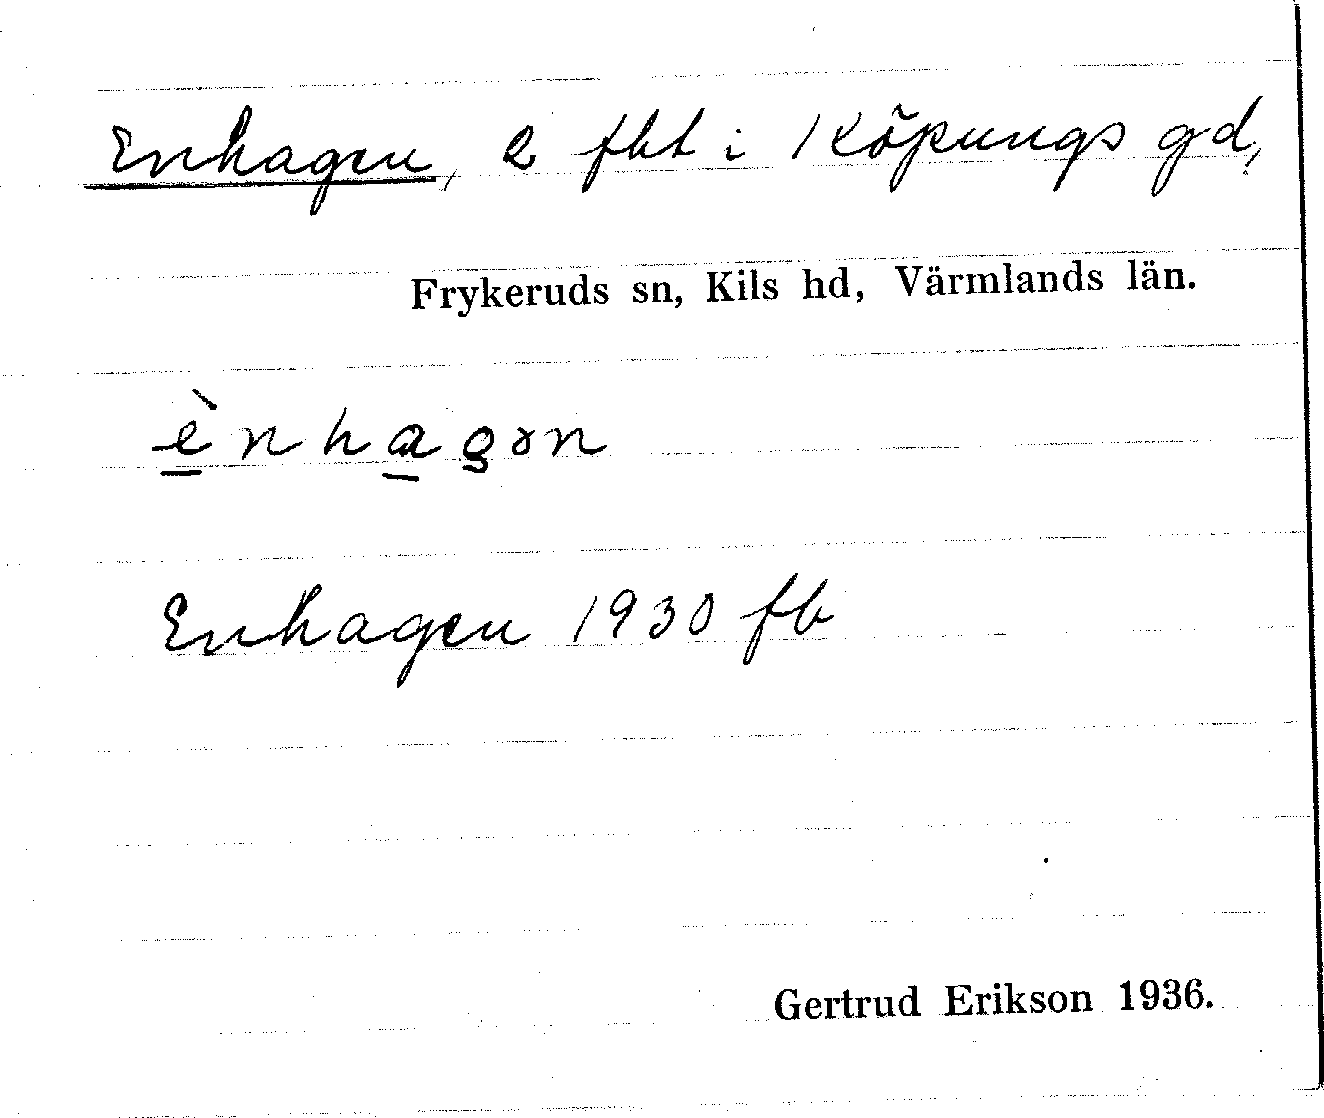 Enhagen, 2 fbt i Köpungs gd,
Frykeruds sn, Kils hd, Värmlands län.
ènhagən
Enhagen 1930 fb
Gertrud Erikson 1936.